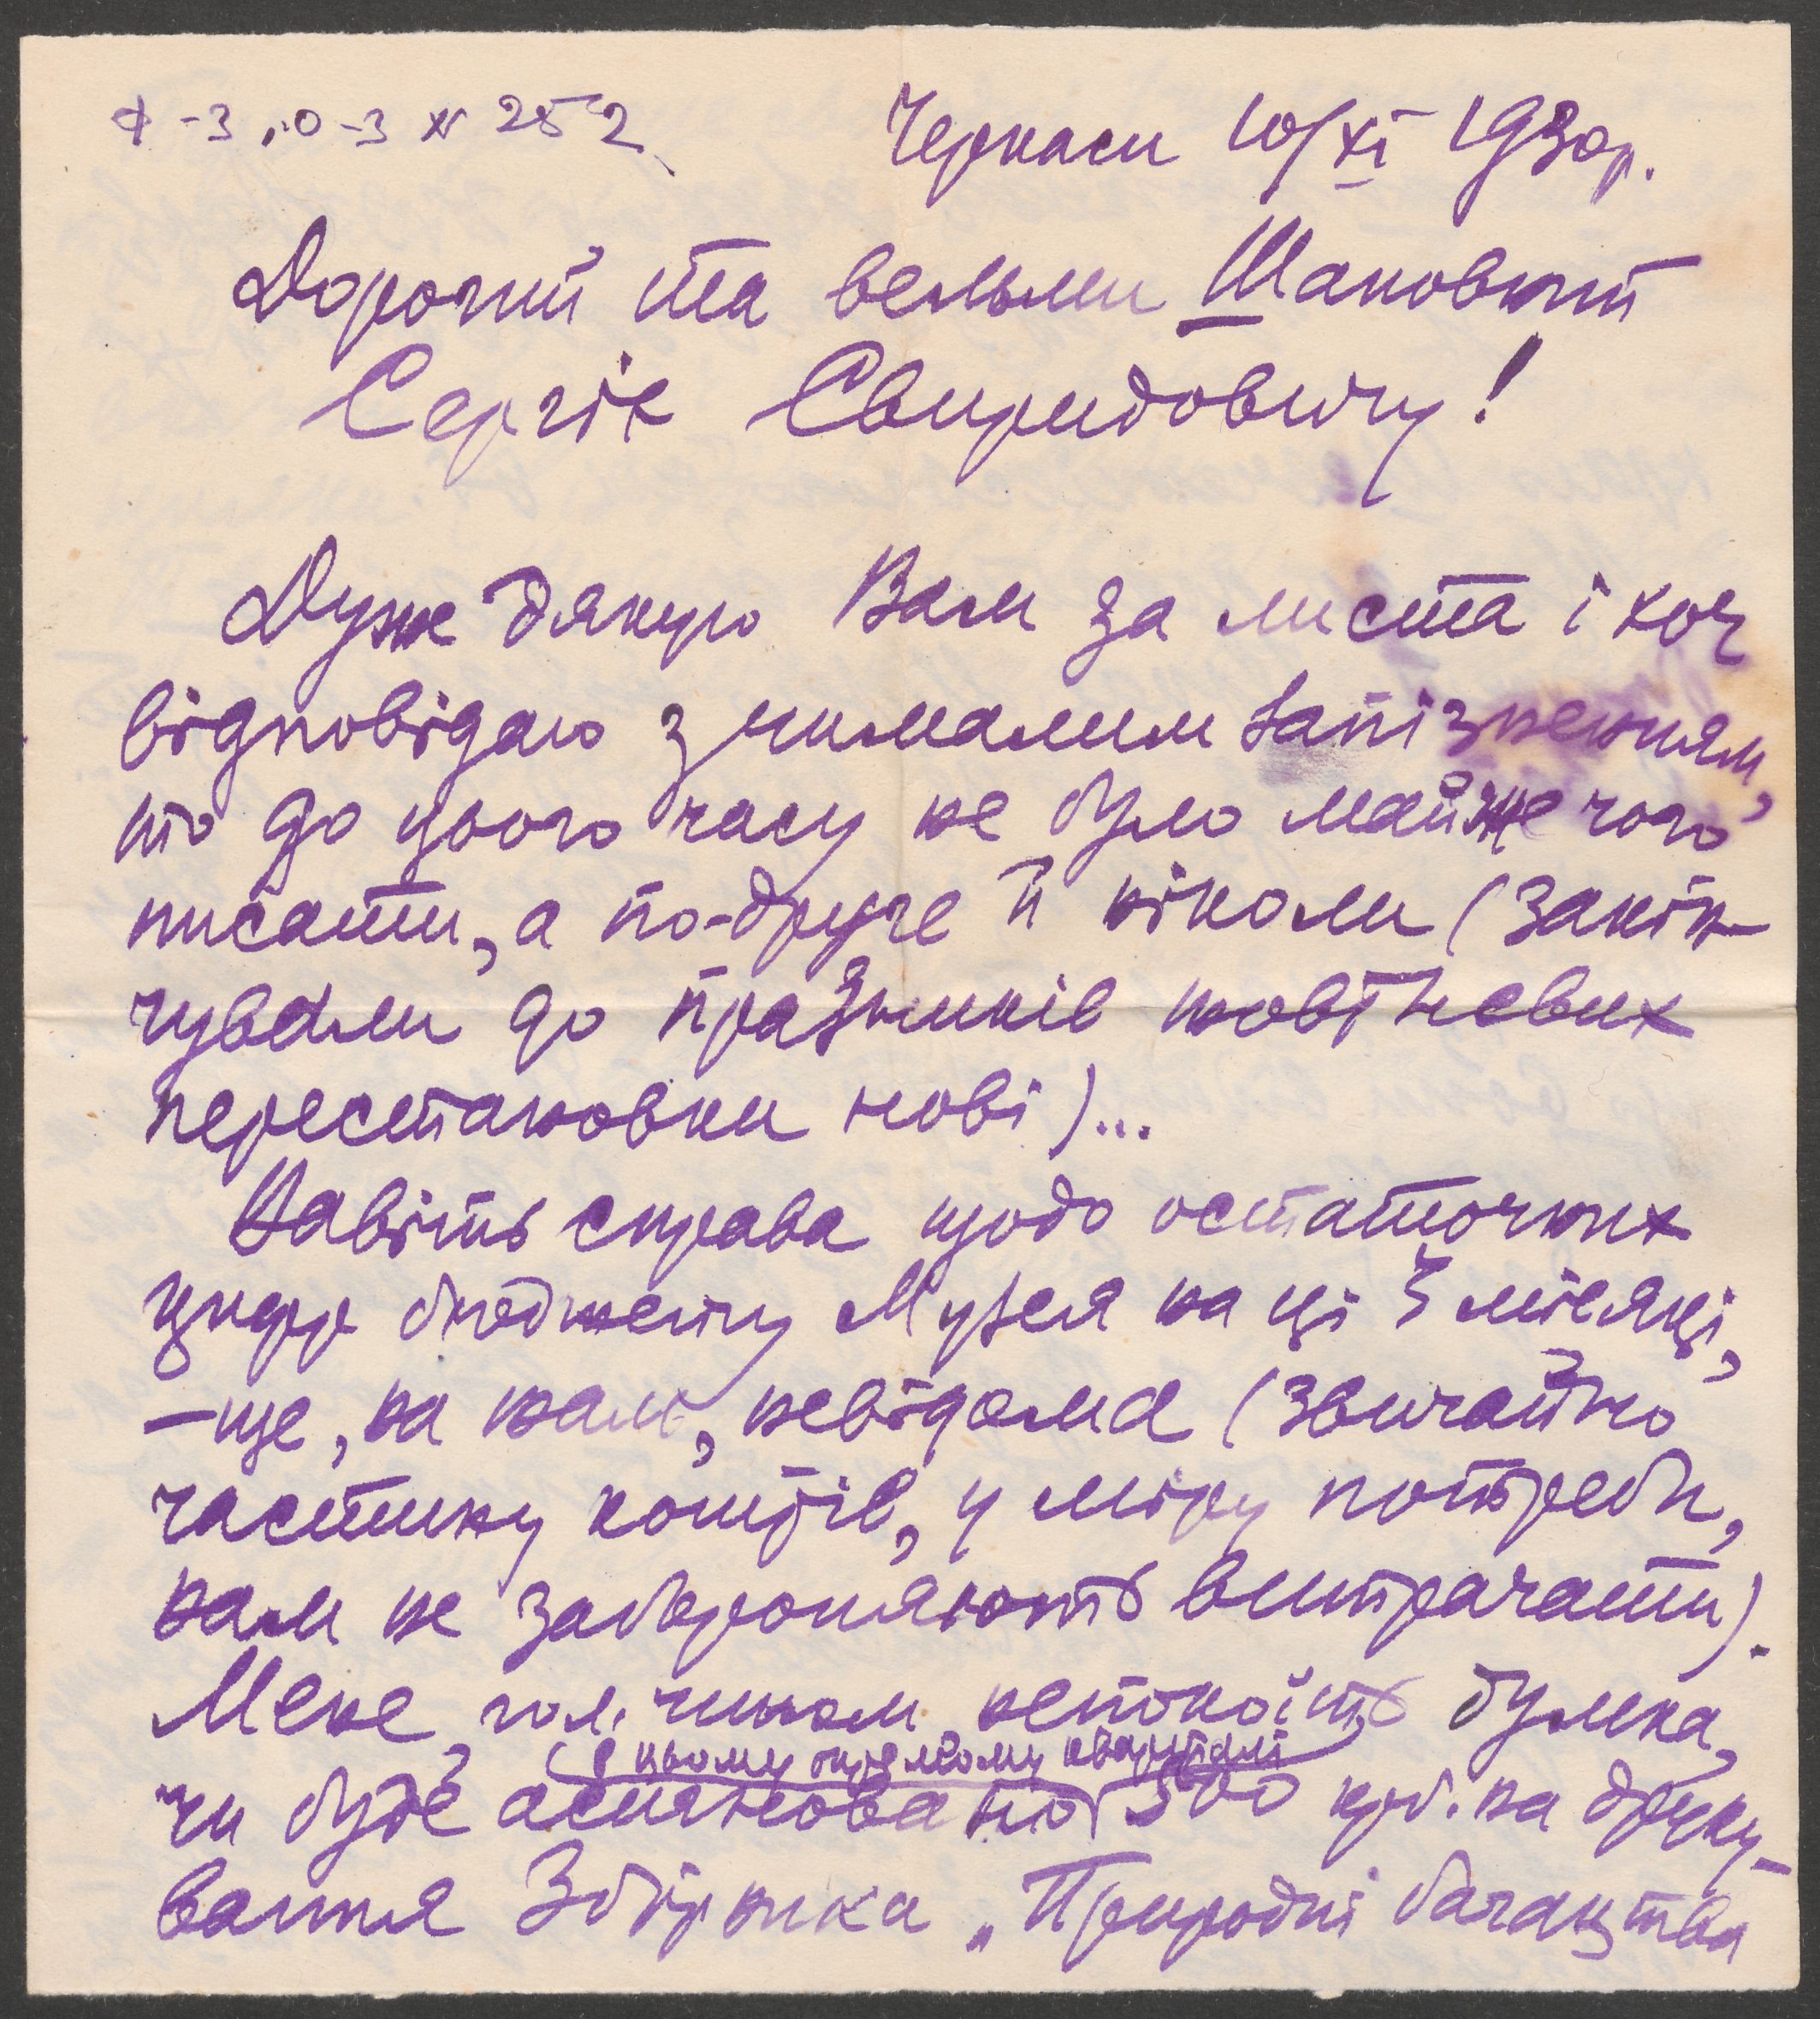 Ф-3, О-3 № 252
Черкаси 10/XI 1930р.
Дорогий та вельми Шановний
Сергіє Свиридовичу!
Дуже дякую Вам за листа і хоч
відповідаю з чималим запізненням,
то до цього часу не було майже чого
писати, а по-друге й ніколи (закін-
чували до празників жовтневих
перестановки нові)...
Навіть справа щодо остаточних
цифр бюджету Музея на ці 3 місяці,
– ще, на жаль, невідома (звичайно
частину коштів, у міру потреби,
нам не забороняють витрачати).
Мене, гол. чином, непокоїть думка,
(в цьому окремому кварталі)
чи буде асигновано 500 крб. на друку-
вання Збірника „Природні багацтва